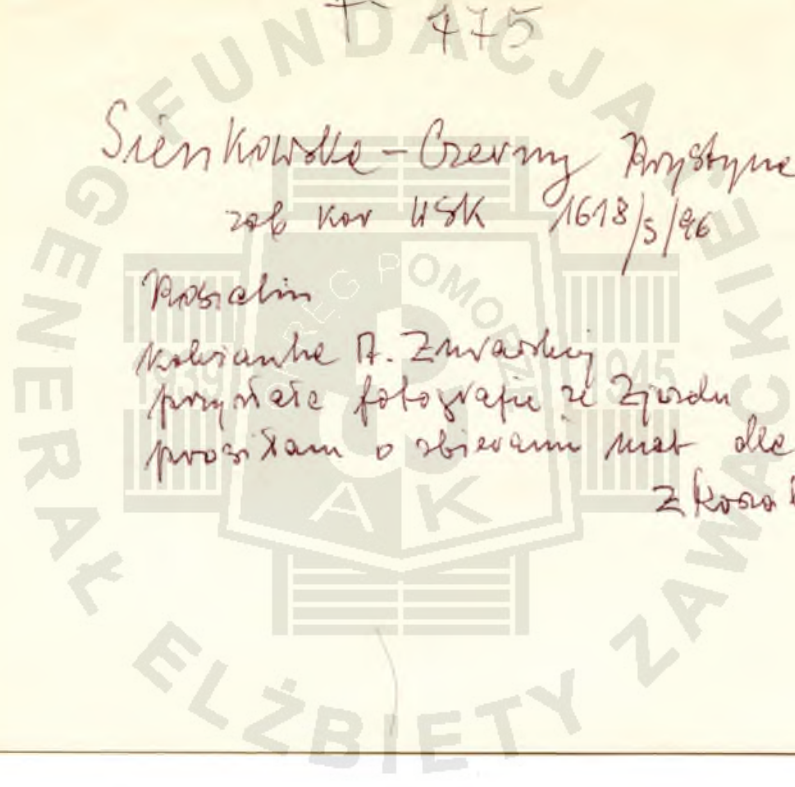 T 475
Sienkowska-Czerny Krystyna
zob kor WSK 1618/S/96
Koszalin
koleżanka A. Zawackiej
przysłała fotografie ze Zjazdu
prosiłam o zbieranie mat dla
FUNDACJA
GENERAŁ ELŻBIETY ZAWACKIEJ
OKRĘG POMORZE
1939 1945
AK